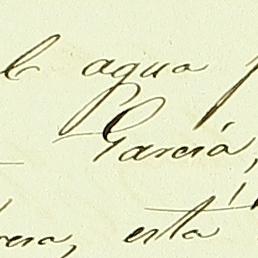 agua
García,
esta